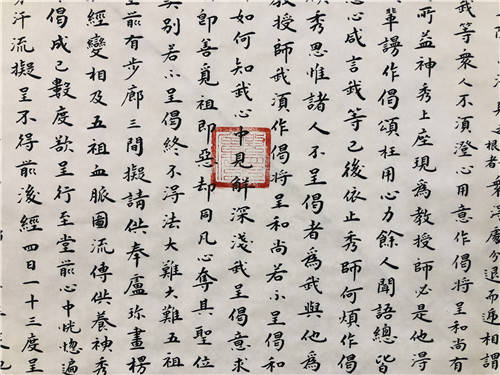 處分退而遞相謂
我等衆人不須澄心用意作偈將呈和尚有
所益神秀上座現為教授師必是他得
輩謾作偈頌枉用心力餘人聞語總皆
息心咸言我等已後依止秀師何煩作偈
秀思惟諸人不呈偈者為我與他為
教授師我須作偈將呈和尚若不呈偈和
如何知我心中見解深淺我呈偈意求
即善覓祖即惡却同凡心奪其聖位
奚別若不呈偈終不得法大難大難五祖
堂前有步廊三間擬請供奉盧珍畫楞
經變相及五祖血脈圖流傳供養神秀
偈成已數度欲呈行至堂前心中恍惚遍
汗流擬呈不得前後經四日一十三度呈